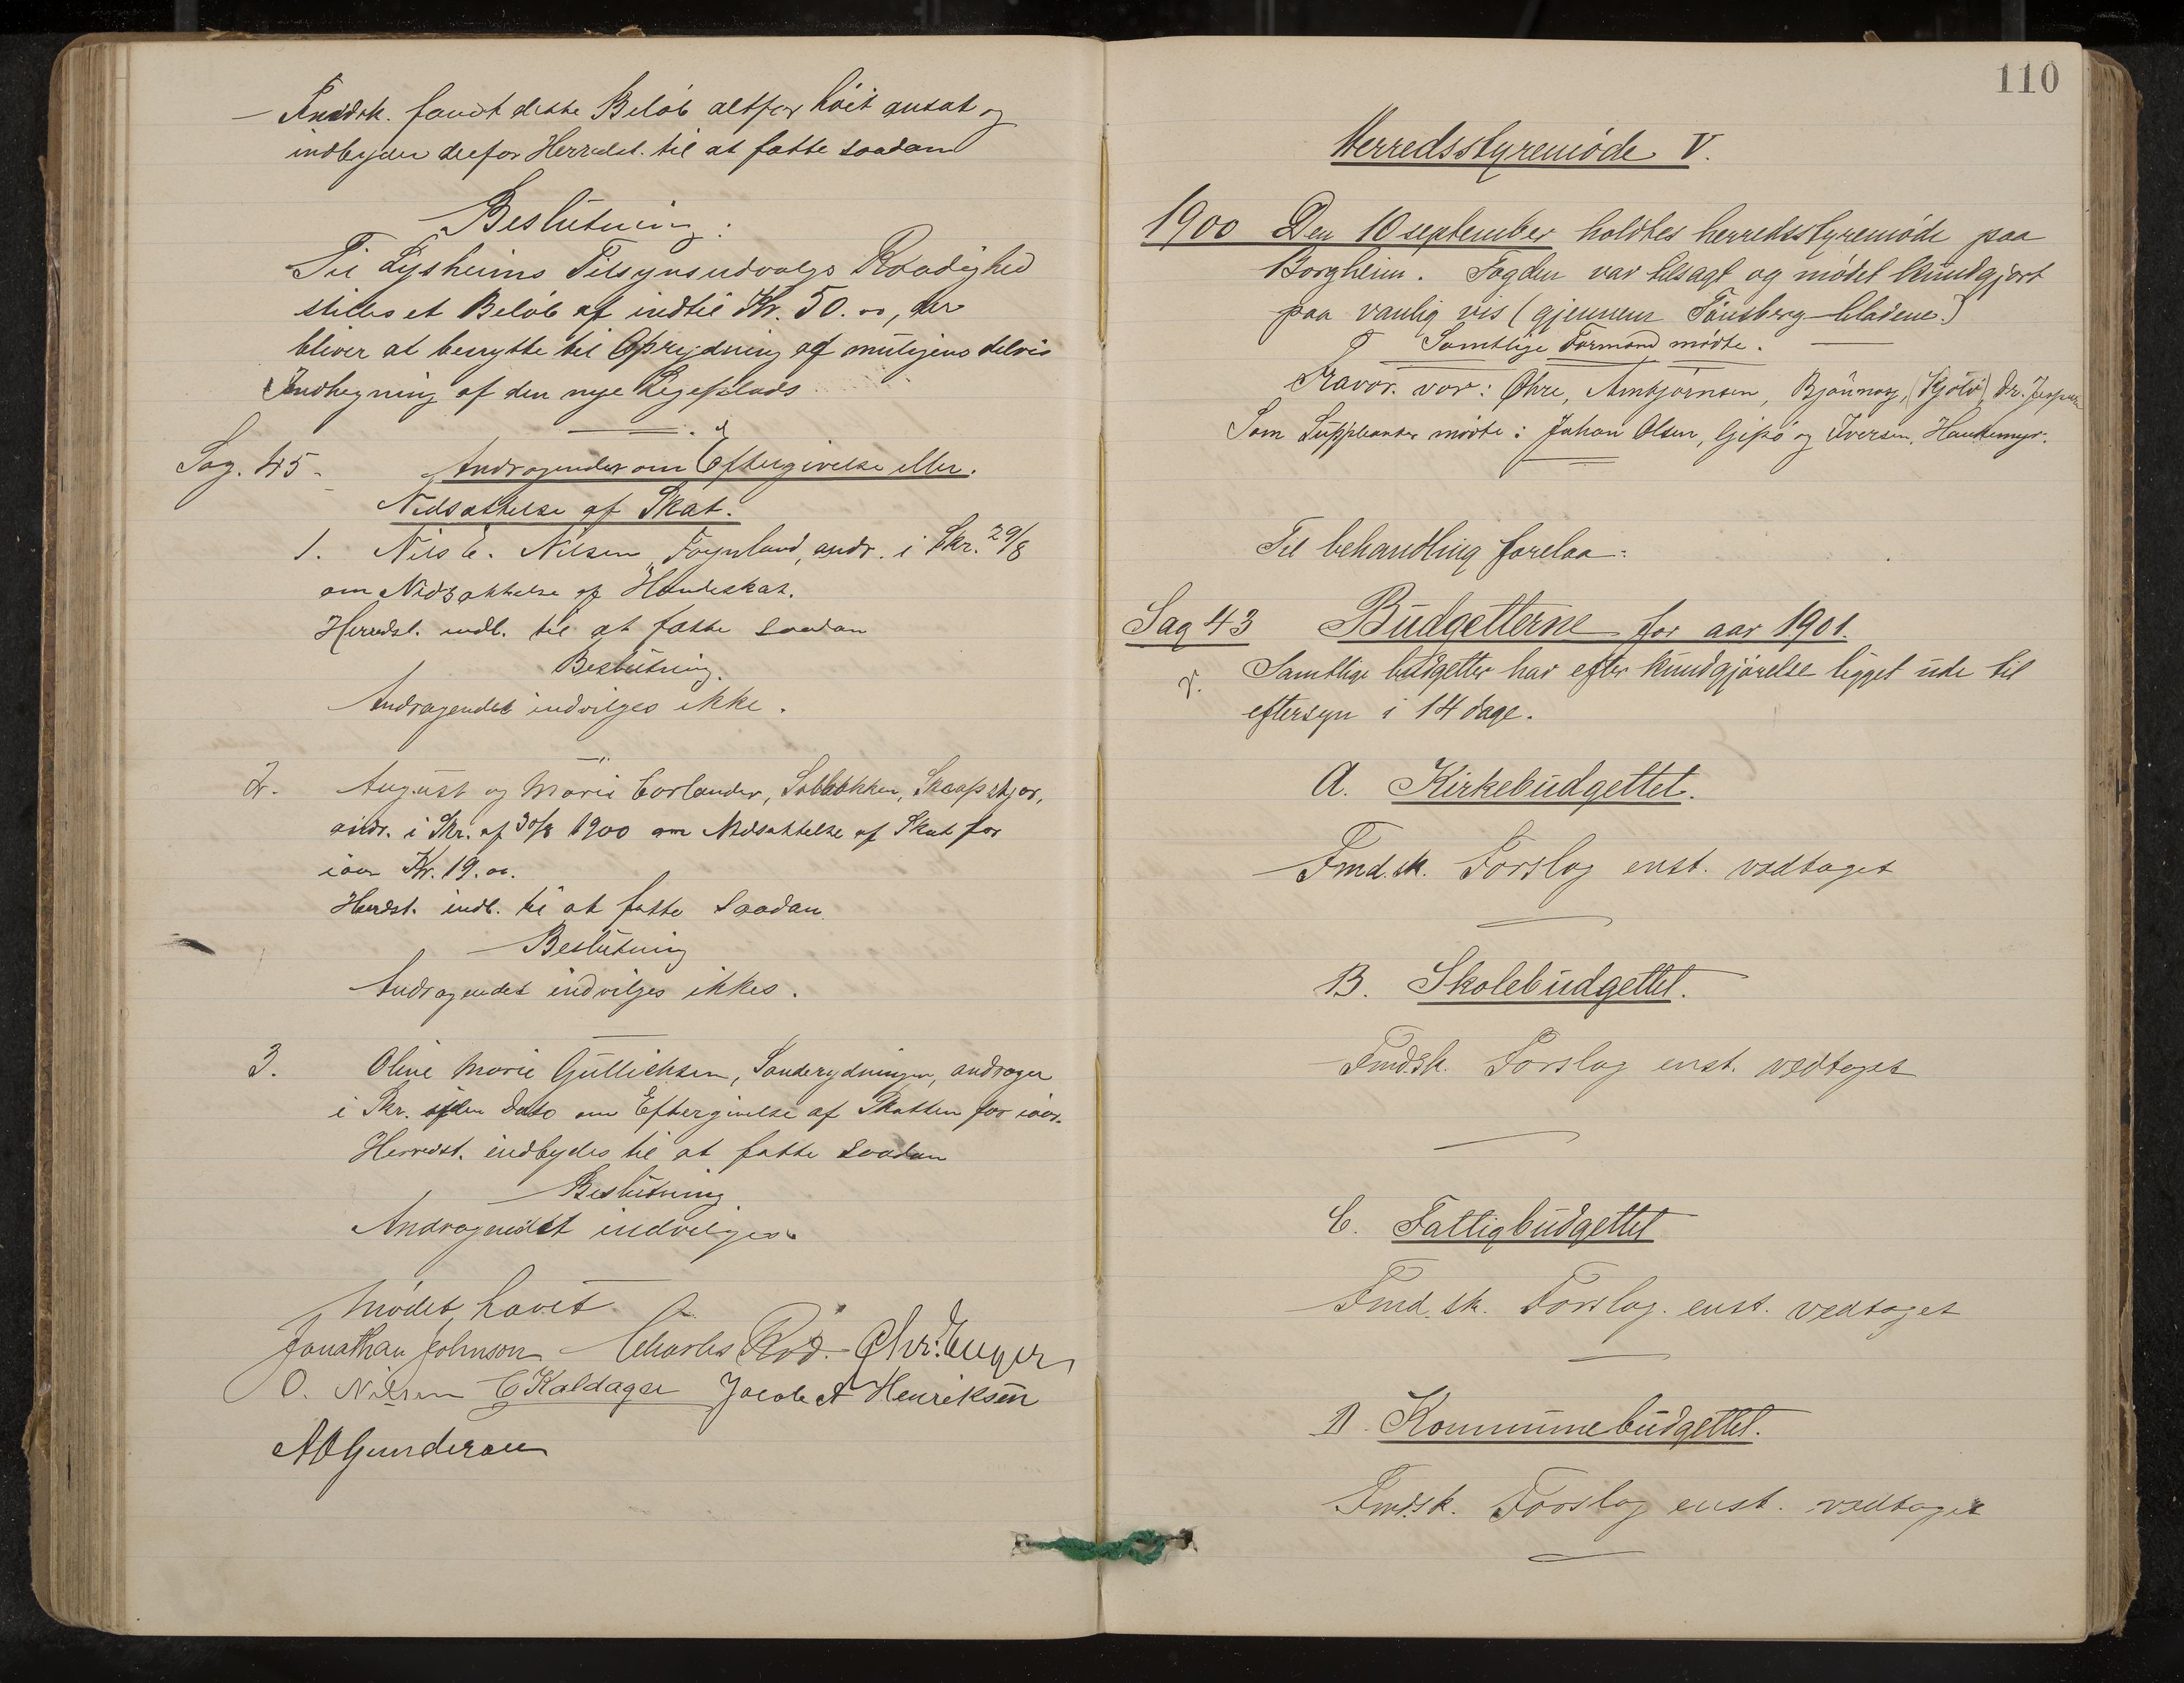 Fmdsk. fandt dette Beløb altfor høit ansat og
indbyder derfor Herredst. til at fatte saadan
Beslutning:
Til Lysheims Tilsynsudvalgs Raadighed
stilles et Beløb af indtil Kr. 50.00, der
bliver at benytte til Oprydning og muligens delvis
Indhegning af den nye Legeplads
Sag. 45. Andragender om Eftergivelse eller
Nedsættelse af Skat.
1. Nils E. Nilsen, Føynland, andr. i Skr. 29/8
om Nedsættelse af Hundeskat.
Herredst. indb. til at fatte saadan
Beslutning.
Andragendet indvilges ikke.
2. August og Marie Corlander, Solbakken, Skaapskjør,
andr. i Skr. af 30/8 1900 om Nedsættelse af Skat for
iaar Kr. 19.00.
Herdst. indb. til at fatte saadan
Beslutning
Andragendet indvilges ikkes.
3. Oline Marie Gullichsen, Sanderydningen, andrager
i Skr. uden Dato om Eftergivelse af Skatten for iaar.
Herredst. indbydes til at fatte saadan
Beslutning
Andragendet indvilges.
Mødet hævet
Jonathan Johnson Charles Rød. Chr:
O. Nilsen C Kaldager Jacob A Henriksen
A O Gundersen
110
Herredsstyremøde V.
1900 Den 10 september holdtes herredsstyremøde paa
Borgheim. Fogden var tilsagt og mødet kundgjort
paa vanlig vis (gjennem Tønsberg-bladene.)
Samtlige Formænd mødte.
Fravær. var: Øhre, Ambjørnsen, Bjønnæs, (Kjøtø), Dr. Jespersen
Som Suppleanter mødte: Johan Olsen, Gipø og Iversen, Haukemyr.
Til behandling forelaa:
Sag 43 Budgetterne for aar 1901.
Samtlige budgetter har efter kundgjørelse ligget ude til
eftersyn i 14 dage.
A. Kirkebudgettet.
Fmd.sk. Forslag enst. vedtaget
B. Skolebudgettet.
Fmdsk. Forslag enst. vedtaget
C. Fattigbudgettet
Fmd.sk. Forslag. enst. vedtaget
D. Kommunebudgettet.
Fmdsk. Forslag enst. vedtaget